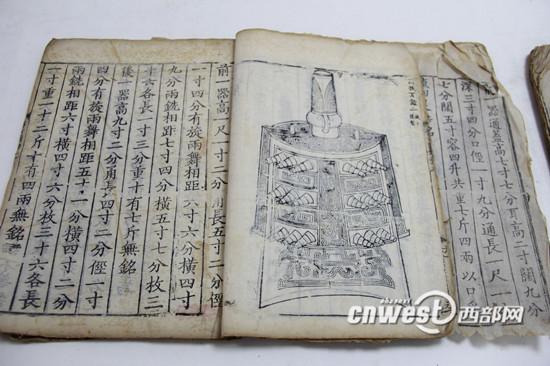 器通蓋高七寸七分耳高二寸闊九分
深三寸四分口徑一寸九分通長一尺一寸
七分闊五寸容四升共重七斤四兩以口
前一器高一尺二寸二分甬長五寸二分
一寸四分有旋兩舞相距六寸六分橫四寸
九分兩銑相距七寸四分橫五寸七分枚三
十六各長一寸三分重十有七斤無銘
後一器高九寸二分甬長四寸二分徑一寸
四分有旋兩舞相距五寸一分橫四寸二分
兩銑相距六寸橫四寸六分枚三十六各長
一寸重一十二斤十有四兩無銘
cnwest西部网
www.cnwest.com